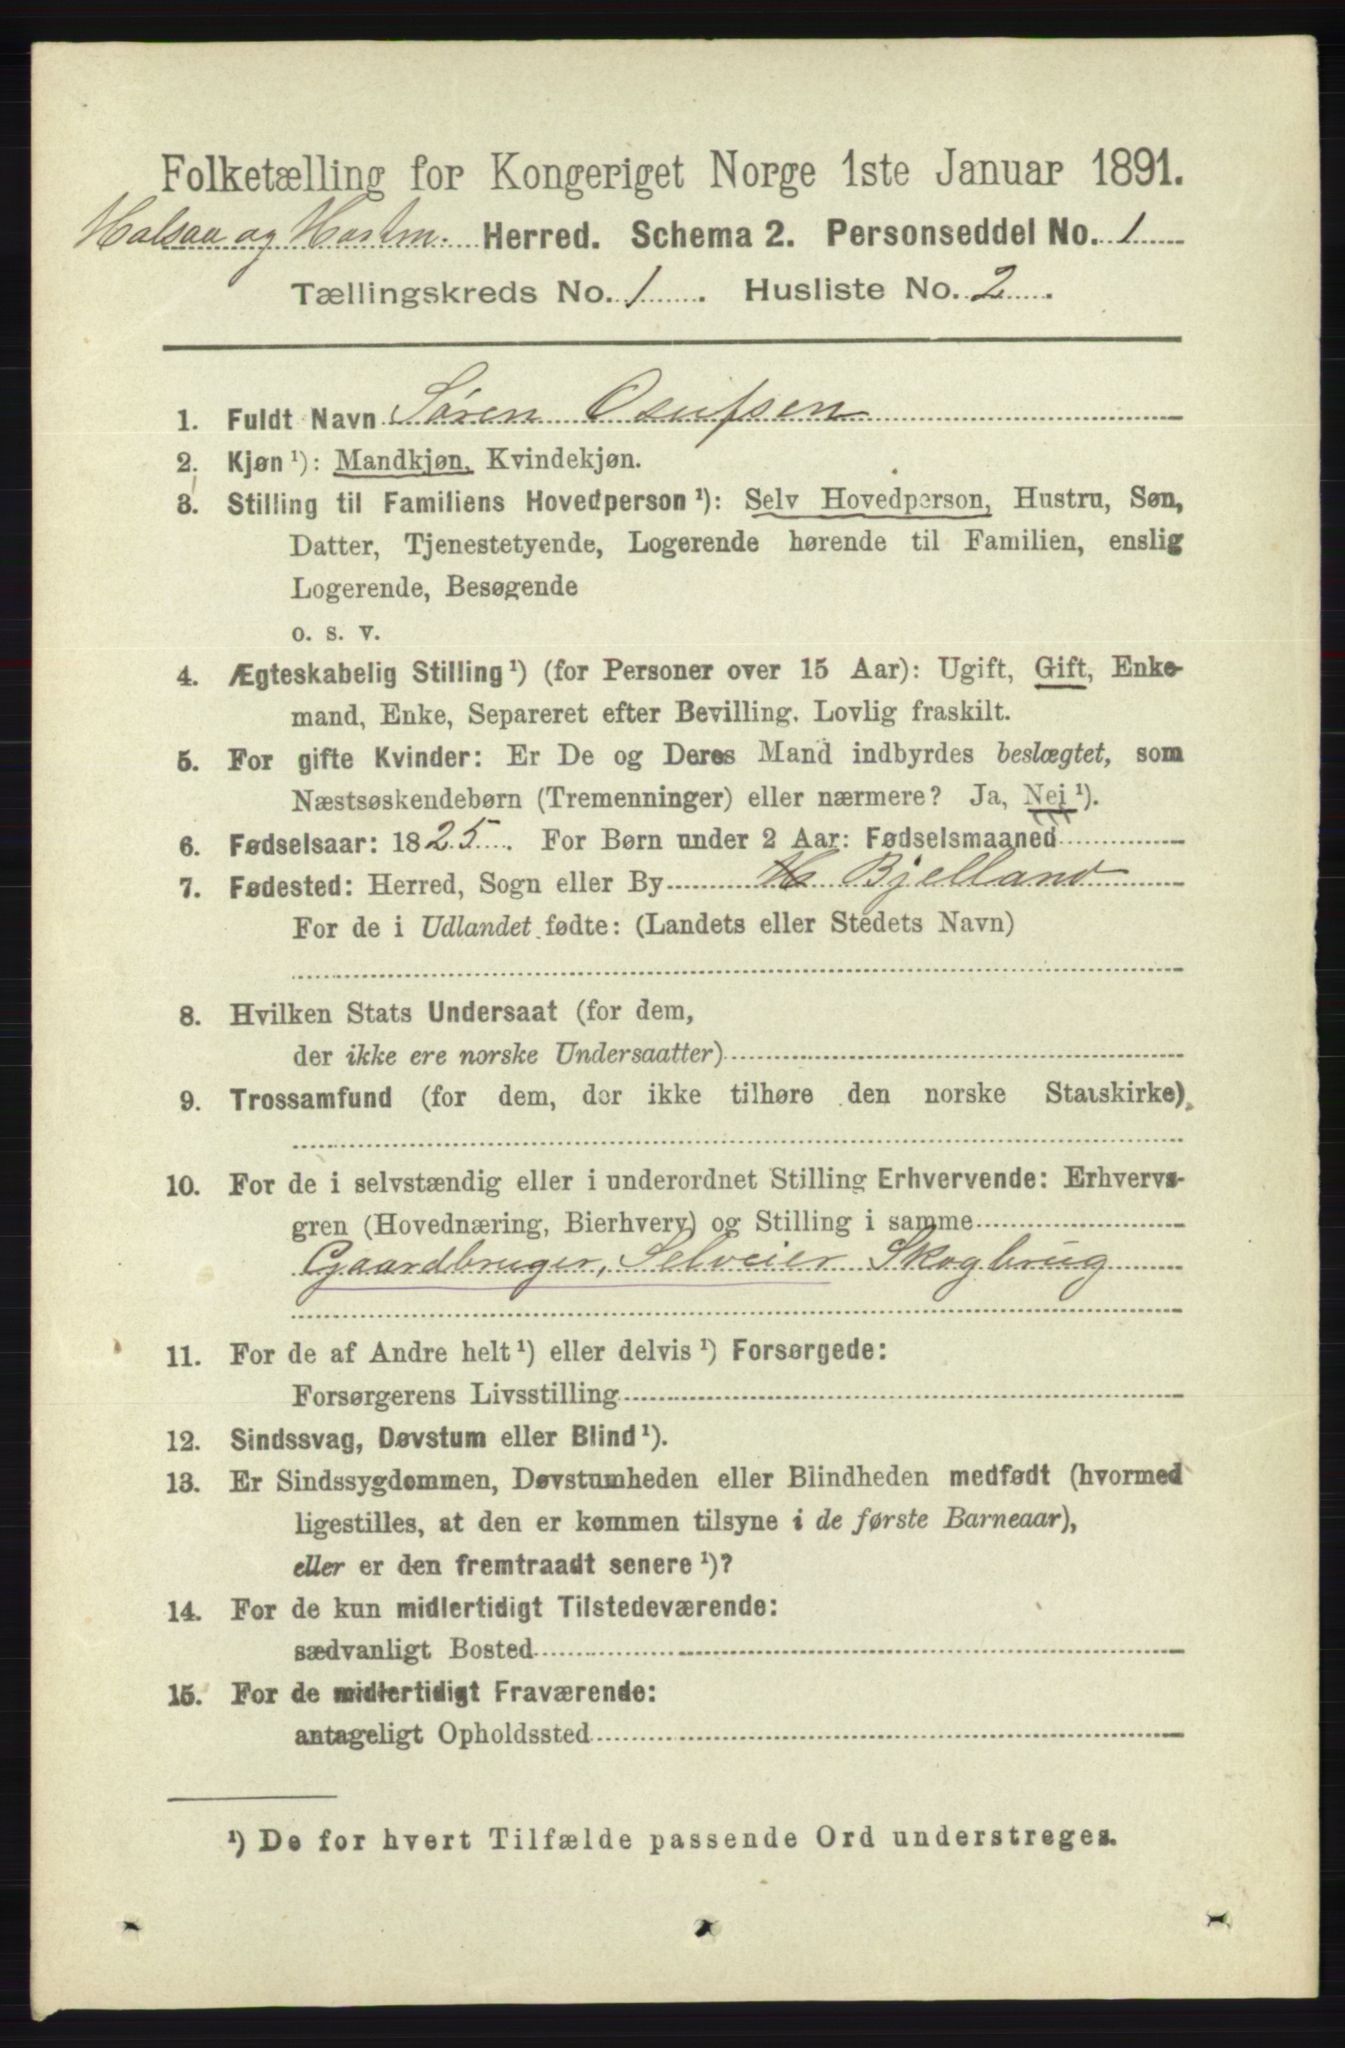 Folketælling for Kongeriget Norge 1ste Januar 1891.
Halsaa og Hartm. Herred. Schema 2. Personseddel No. 1
Tællingskreds No. 1. Husliste No. 2.
1. Fuldt Navn Søren Osufsen
2. Kjøn ¹): Mandkjøn, Kvindekjøn.
3. Stilling til Familiens Hovedperson ¹): Selv Hovedperson, Hustru, Søn,
Datter, Tjenestetyende, Logerende hørende til Familien, enslig
Logerende, Besøgende
o. s. v.
4. Ægteskabelig Stilling ¹) (for Personer over 15 Aar): Ugift, Gift, Enke-
mand, Enke, Separeret efter Bevilling. Lovlig fraskilt.
5. For gifte Kvinder: Er De og Deres Mand indbyrdes beslægtet, som
Næstsøskendebørn (Tremenninger) eller nærmere? Ja, Nei ¹).
6. Fødselsaar: 1825. For Børn under 2 Aar: Fødselsmaaned
7. Fødested: Herred, Sogn eller By Bjelland
For de i Udlandet fødte: (Landets eller Stedets Navn)
8. Hvilken Stats Undersaat (for dem,
der ikke ere norske Undersaatter)
9. Trossamfund (for dem, der ikke tilhøre den norske Statskirke)
10. For de i selvstændig eller i underordnet Stilling Erhvervende: Erhvervs-
gren (Hovednæring, Bierhverv) og Stilling i samme
Gaardbruger, Selveier Skogbrug
11. For de af Andre helt ¹) eller delvis ¹) Forsørgede:
Forsørgerens Livsstilling
12. Sindssvag, Døvstum eller Blind ¹).
13. Er Sindssygdommen, Døvstumheden eller Blindheden medfødt (hvormed
ligestilles, at den er kommen tilsyne i de første Barneaar),
eller er den fremtraadt senere ¹)?
14. For de kun midlertidigt Tilstedeværende:
sædvanligt Bosted
15. For de midlertidigt Fraværende:
antageligt Opholdssted
¹) De for hvert Tilfælde passende Ord understreges.